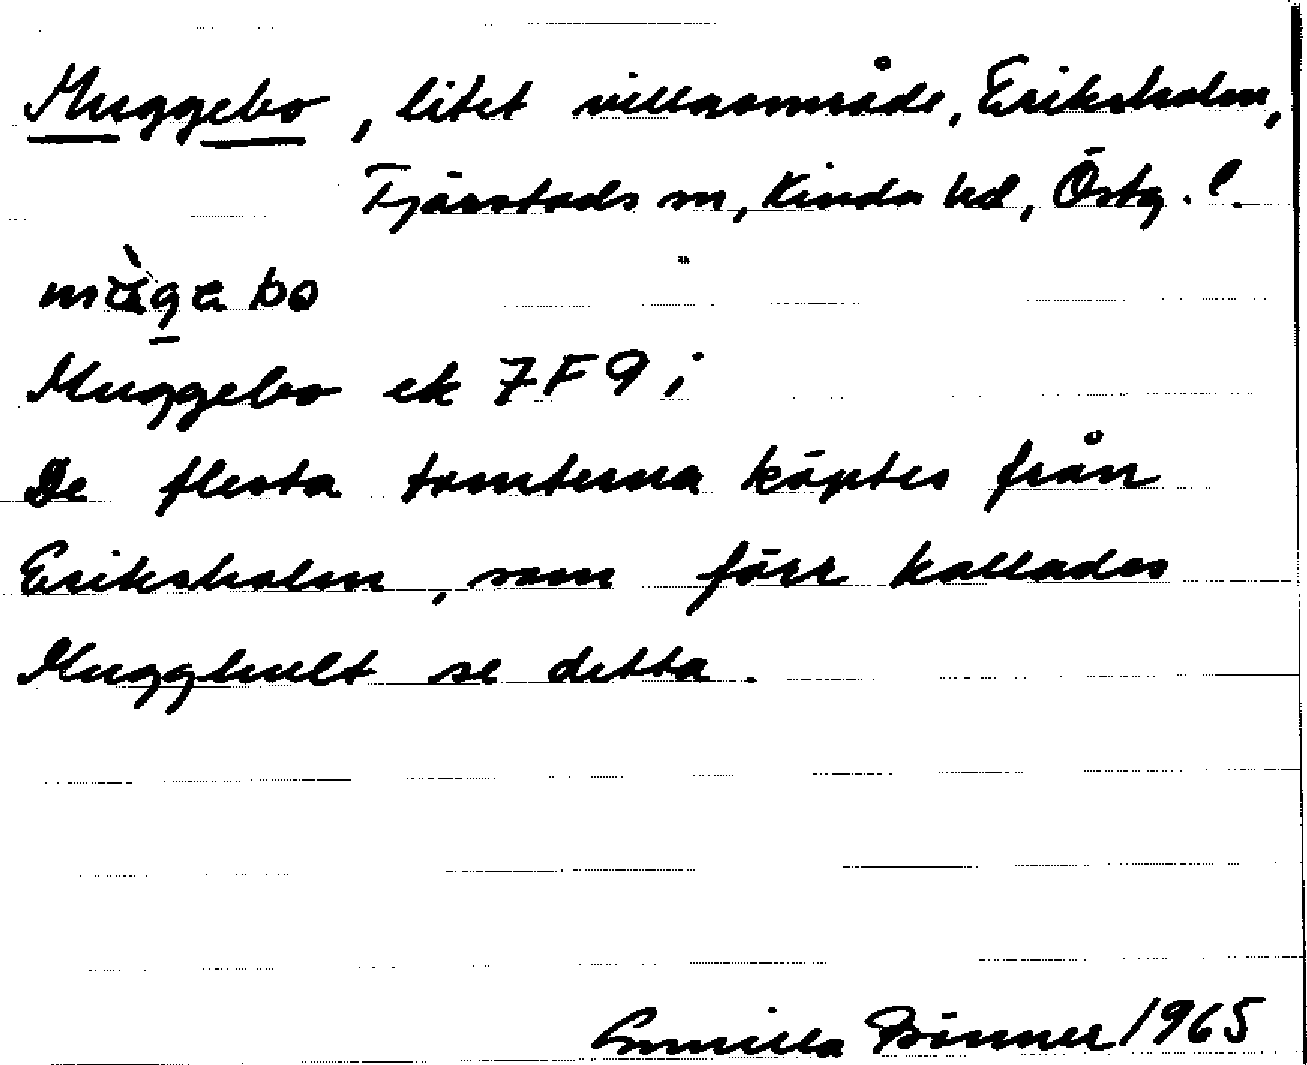 Muggebo, litet villaområde, Eriksholm,
Tjärstads sn, Kinda hd, Östg. l.
mùgebo
Muggebo ek 7F9i
De flesta tomterna köptes från
Eriksholm, som förr kallades
Mugghult se detta.
Gunilla 1965